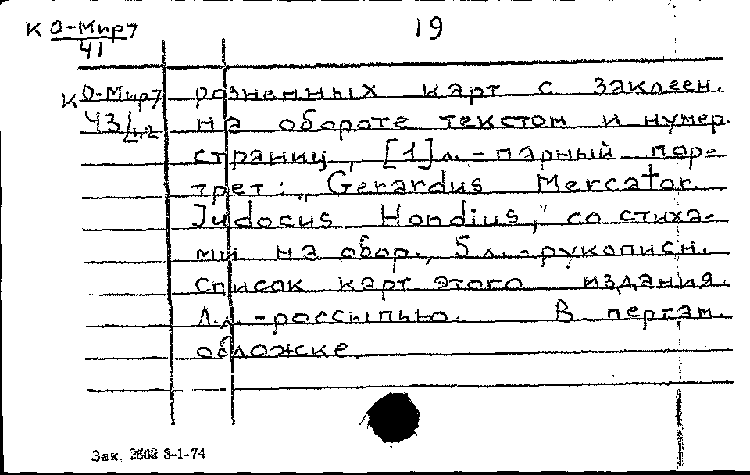 К О-Мир7 19
41
К О-Мир7 розненных карт с заклеен.
43/ на обороте текстом и нумер.
страниц, [1] л. - парный пор-
трет: „Gerardus Mercator
Judocus Hondius,“ со стиха-
ми на обор., 5 л. - рукописн.
список карт этого издания.
Л.л. - россыпью. В пергам.
обложке.
Зак. 2602 3-1-74